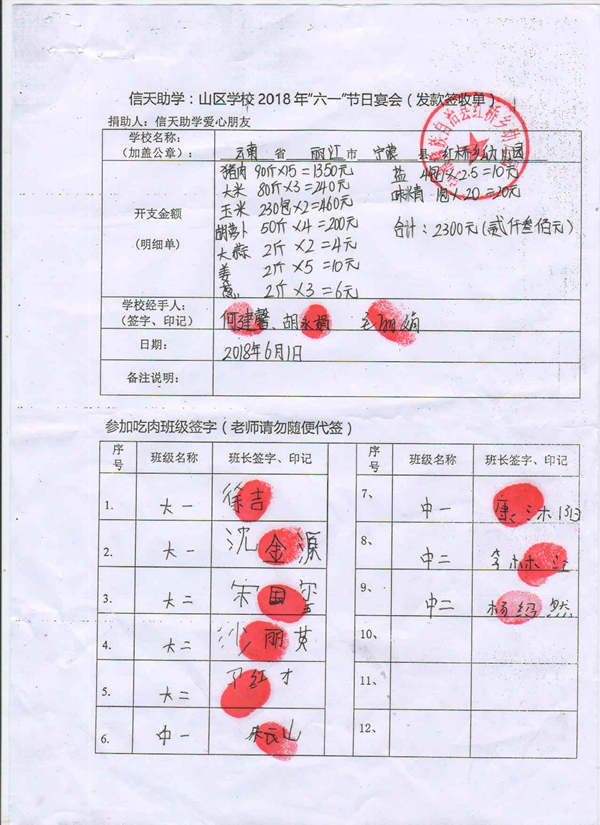 信天助学：山区学校2018年“六一”节日宴会（发款签收单）
捐助人：信天助学爱心朋友
学校名称：
（加盖公章）：
云南 省 丽江 市 宁蒗 县 红桥乡幼儿园
开支金额
（明细单）
猪肉 90斤×15=1350元 盐 4包×2.5=10元
大米 80斤×3=240元 味精 1包×20=20元
玉米 230包×2=460元
胡萝卜 50斤×4=200元 合计：2300元(贰仟叁佰元)
大蒜 2斤×2=4元
姜 2斤×5=10元
葱 2斤×3=6元
学校经手人：
（签字、印记）
何建馨、胡永娟 丽娟
日期：
2018年6月1日
备注说明：
参加吃肉班级签字（老师请勿随便代签）
序号 班级名称 班长签字、印记
1. 大一 徐吉
2. 大一 沈金源
3. 大二 宋田
4. 大二 沙丽英
5. 大二 红才
6. 中一 朱云山
序号 班级名称 班长签字、印记
7、 中一 康
8、 中二 李
9、 中二 杨绍然
10、
11、
12、